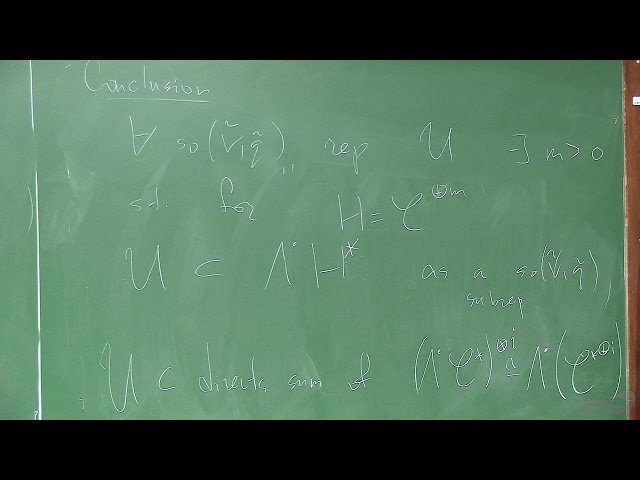 Conclusion
∀ so(Ṽ, q̃) rep U ∃ m>0
s.t. for H = 𝒞^{⊕m}
U ⊂ Λ˙H* as a so(Ṽ, q̃)
subrep
U ⊂ directs sum of (Λ˙𝒞*)^{⊗i} ≅ Λ˙(𝒞*^{⊕i})